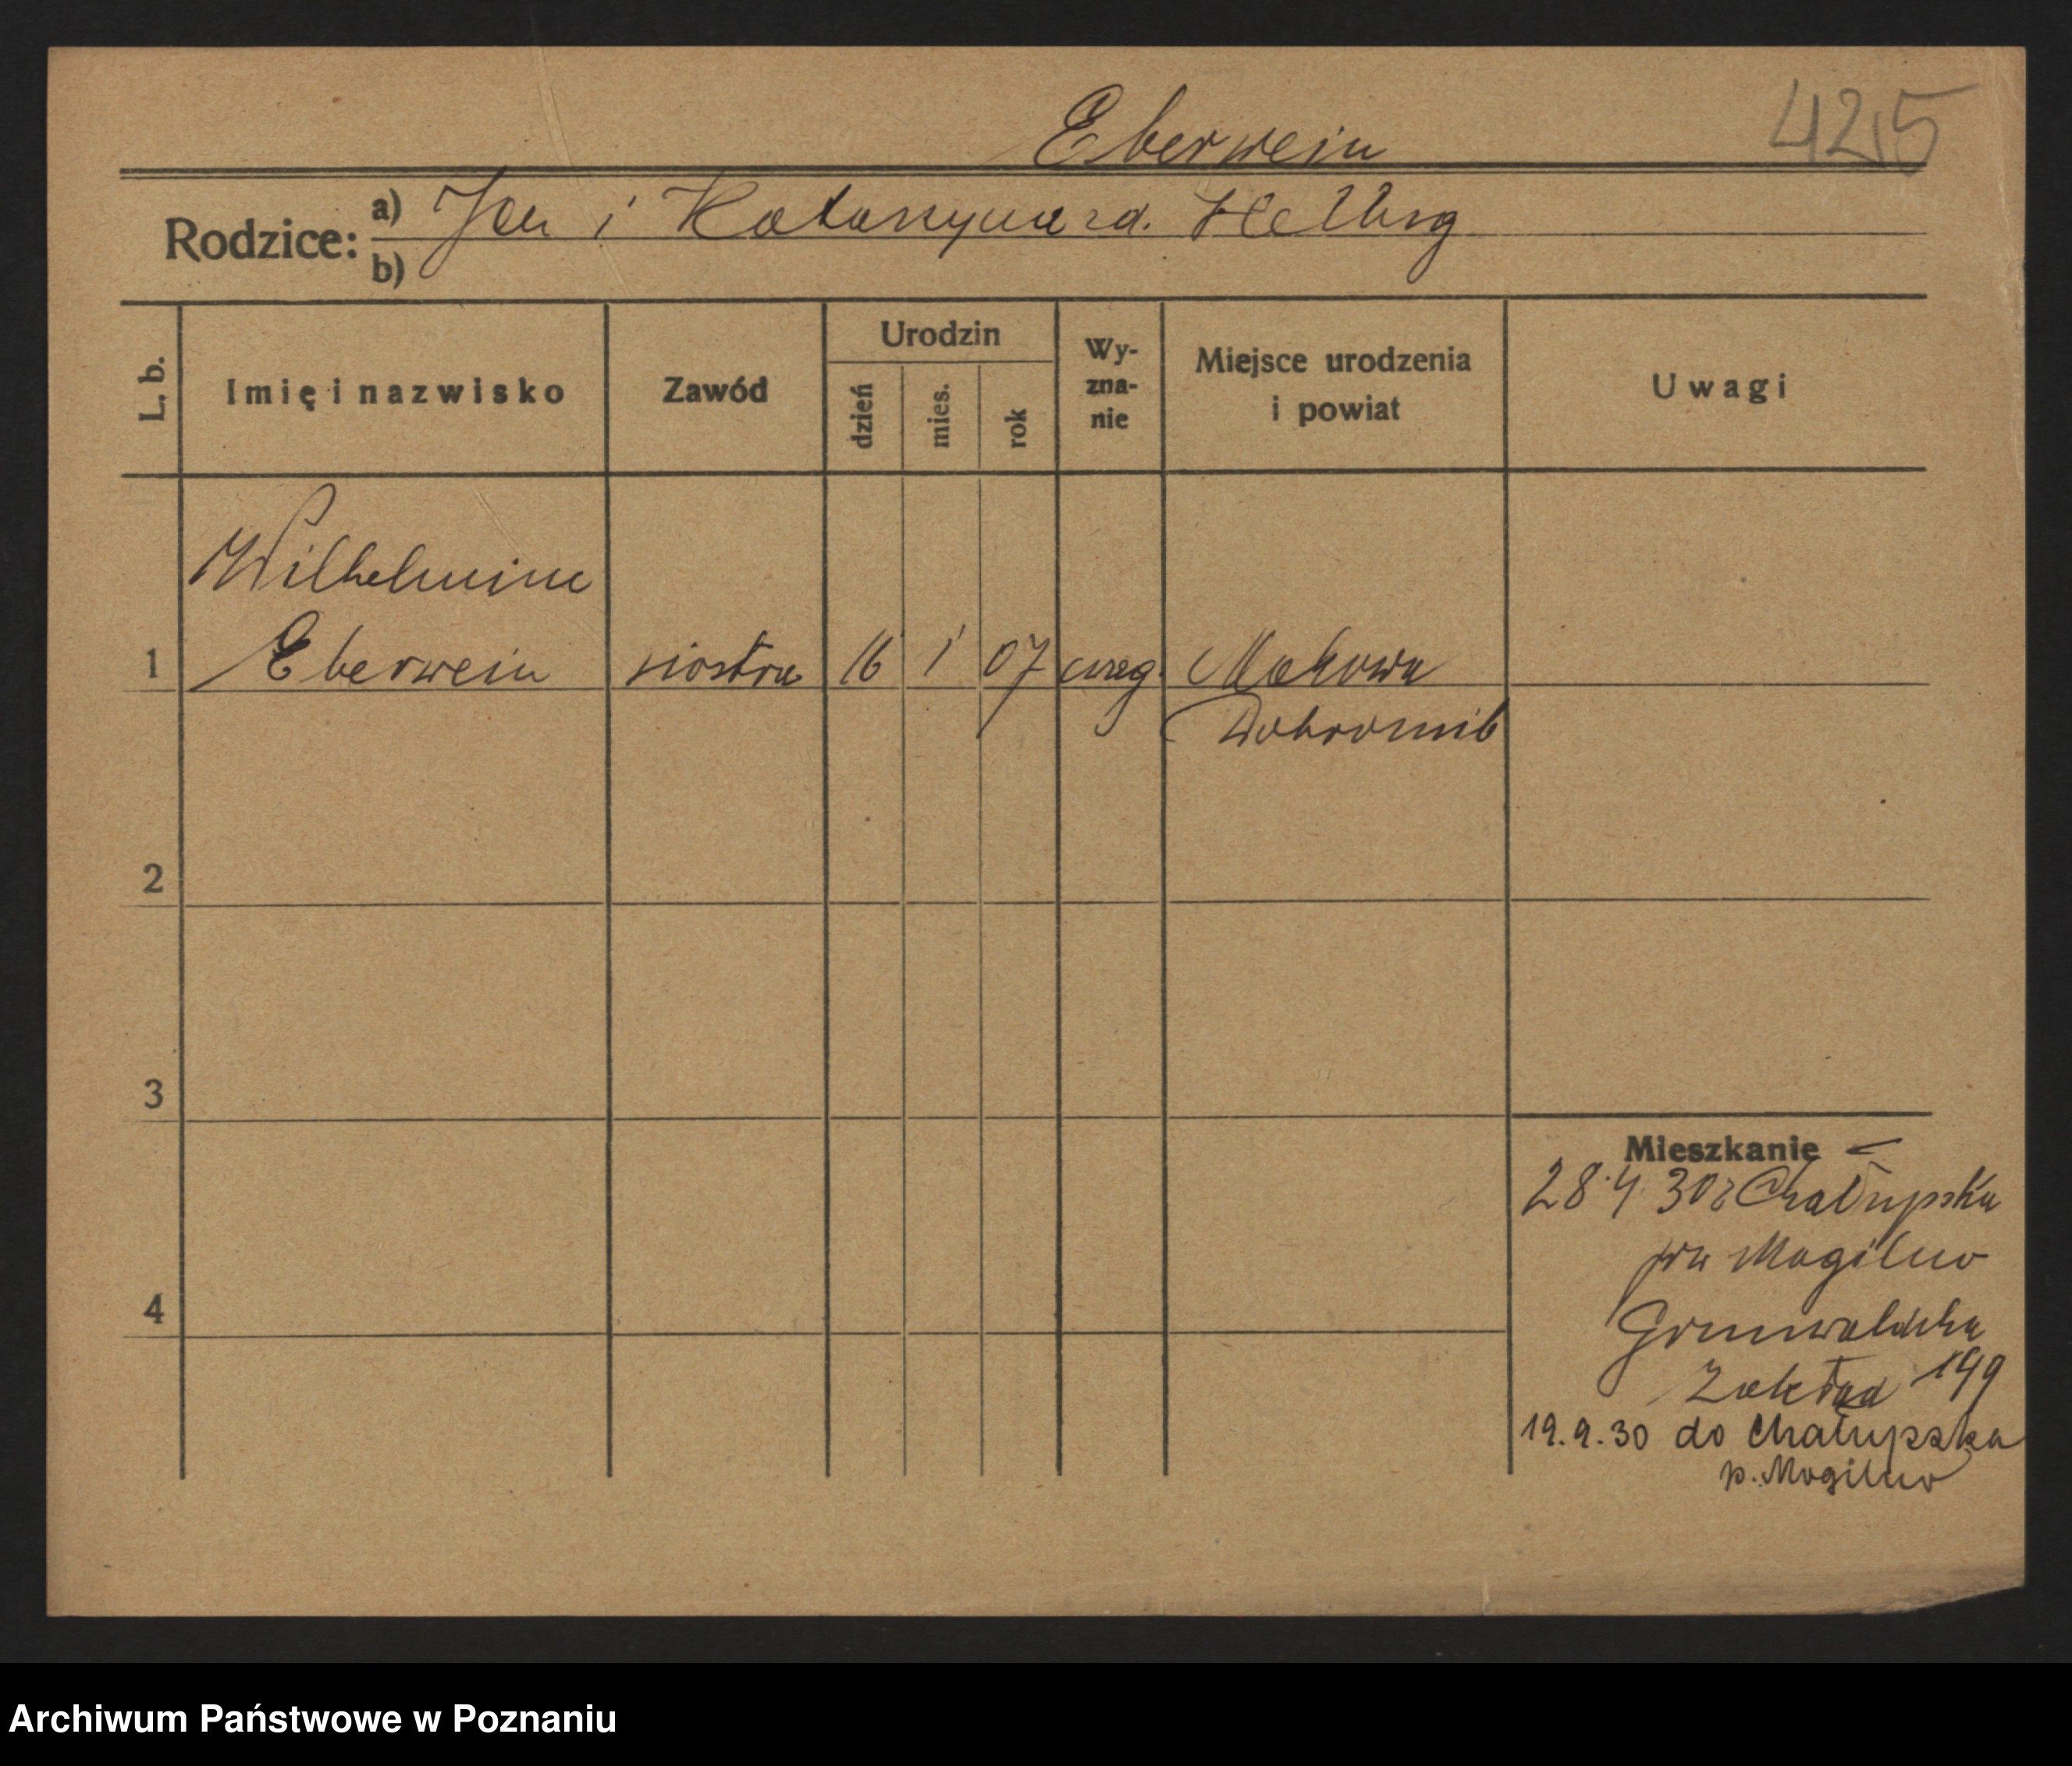 Eberwein
425
Rodzice: a) Jan i Katarzyna zd. Hellwig
b)
L. b. Imię i nazwisko Zawód Urodzin dzień mies. rok Wy-zna-nie Miejsce urodzenia i powiat Uwagi
Wilhelmine
1 Eberwein siostra 16 1 07 ewag. Makowa
Dobromil
2
3
Mieszkanie
28.4.30 z Chałupska
pow Mogilno
4 Grunwaldzka
Zakład 199
19.9.30 do Chałupska
p. Mogilno
Archiwum Państwowe w Poznaniu